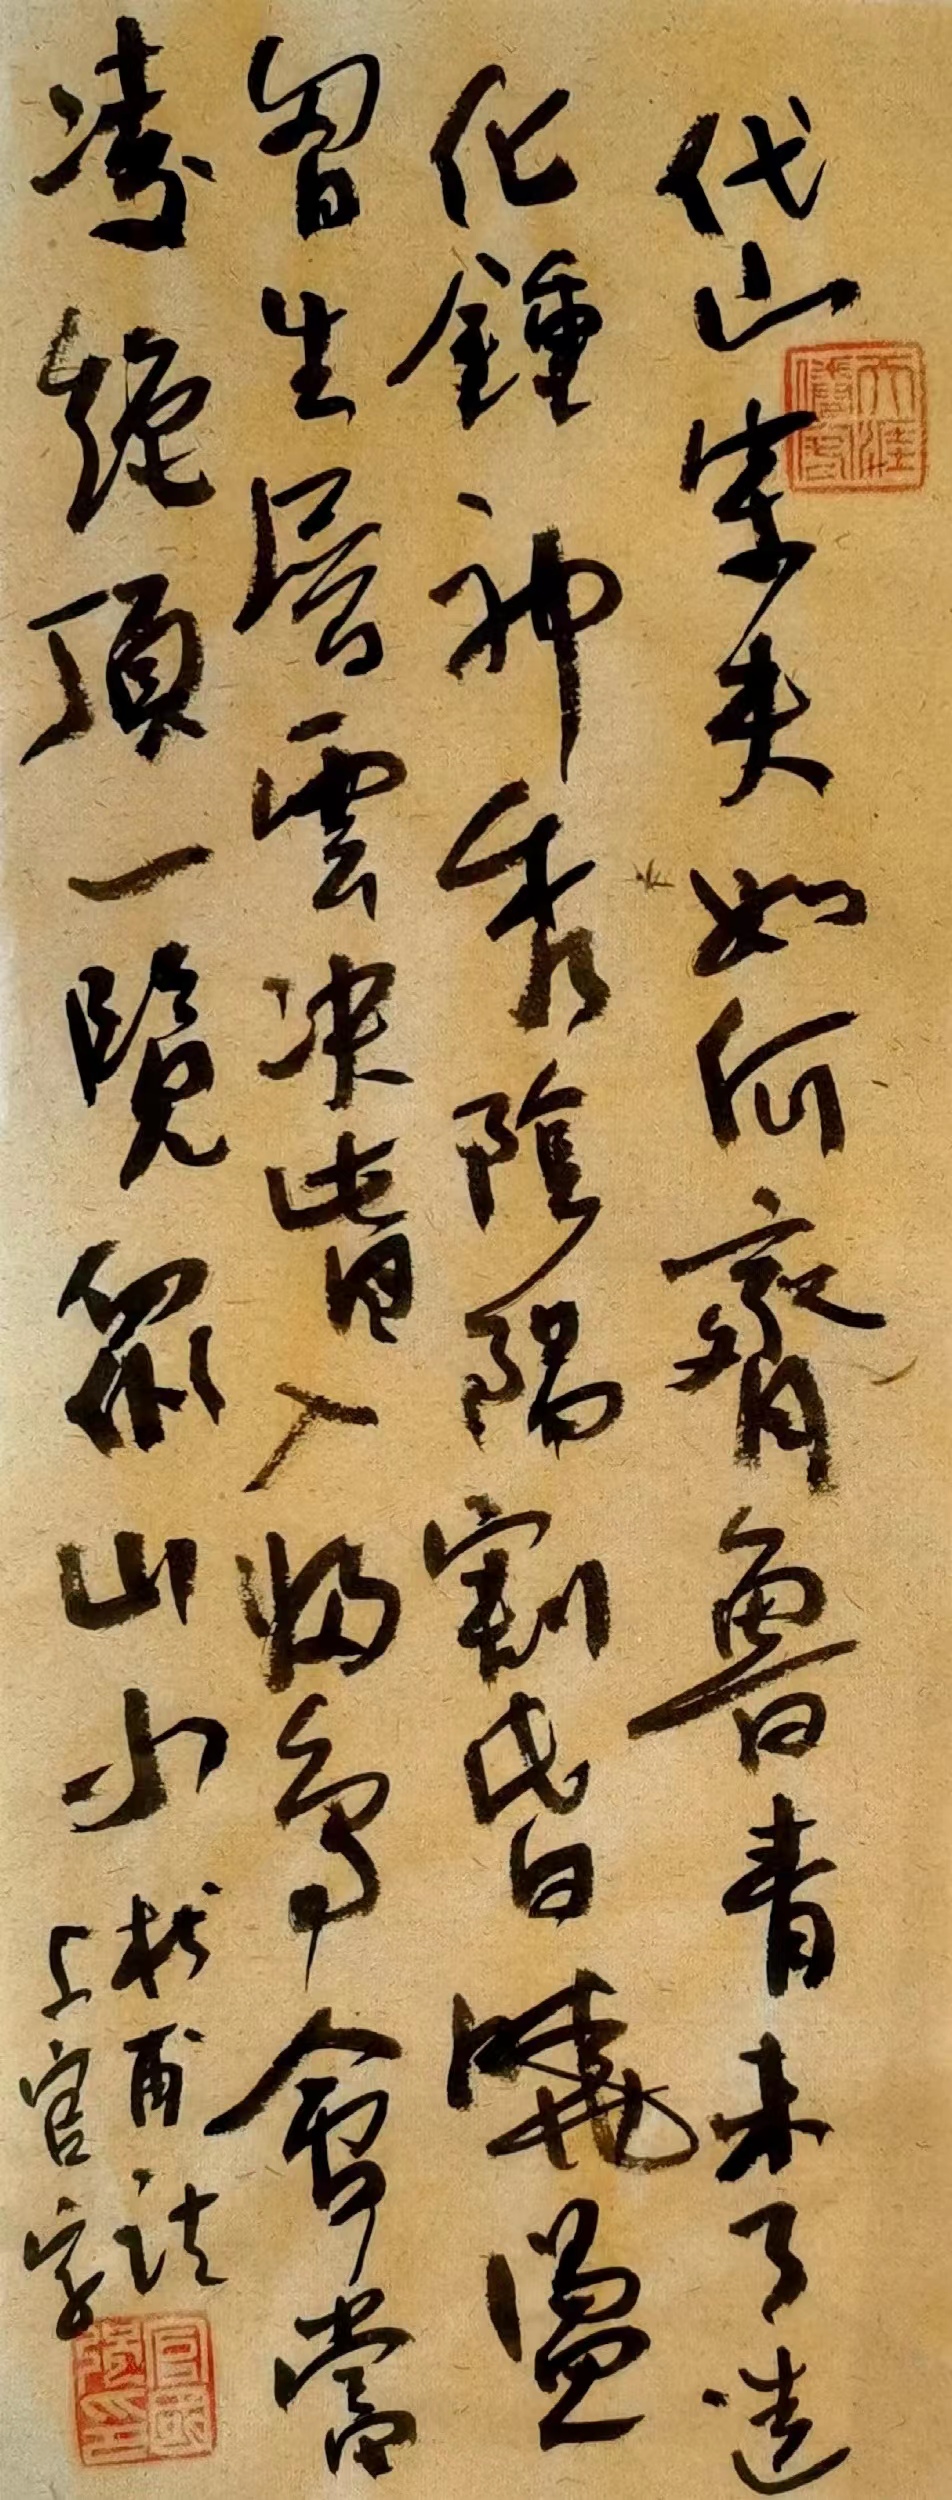 岱宗夫如何齊魯青未了造
化鍾神秀陰陽割昏曉盪
胷生層雲决眥入歸鳥會當
凌絕頂一覽眾山小
杜甫詩
上官字